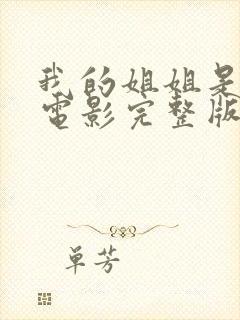 我的姐姐是
電影完整版
单芳